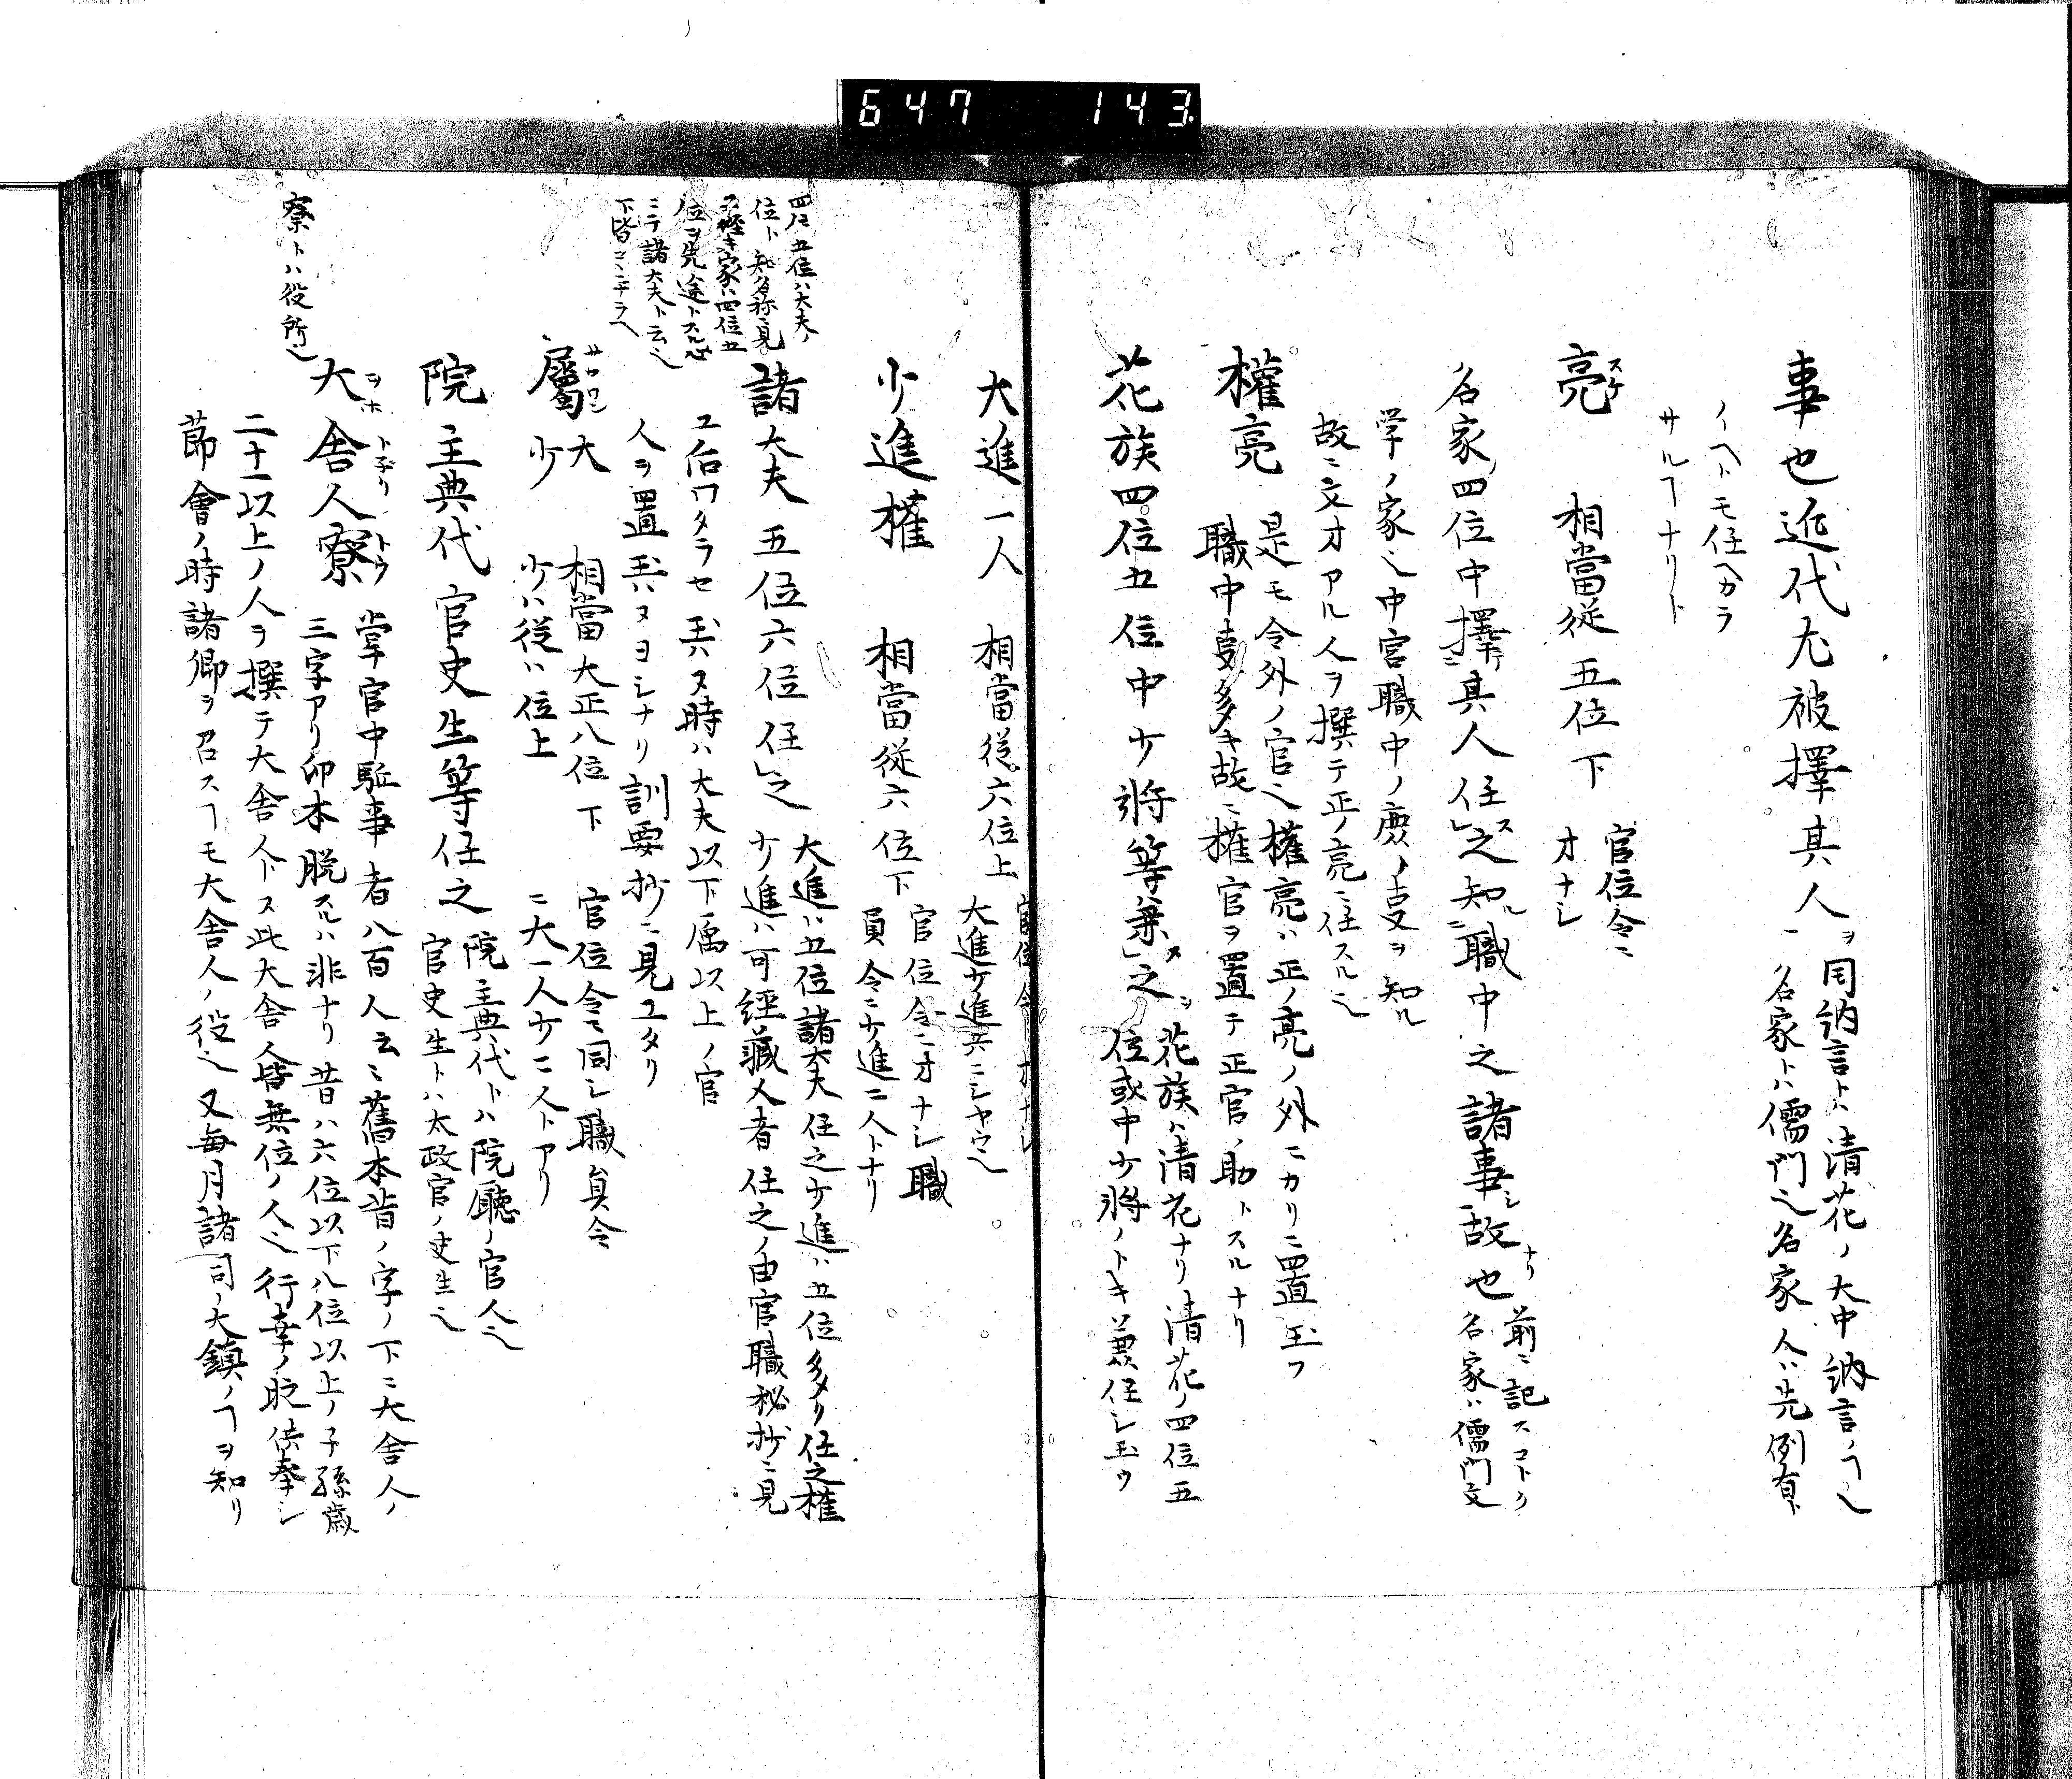 647 143
事也近代尤被擇其人ヲ
同納言トハ清花ノ大中納言ノヿ也
一名家トハ儒門也名家ノ人ハ先例有ト
イヘトモ任ヘカラ
サルヿナリト
亮 スケ 相當從五位下
官位令ニ
オナシ
名家四位中擇テ其人任ス之知ル職中之諸事ヲ故也ナリ
前ニ記スコトク
名家ハ儒門文
学ノ家也中宮職中ノ庶ノ支ヲ知ル
故ニ文才アル人ヲ撰テ正ノ亮ニ任スル也
權亮
是モ令外ノ官也權亮ハ正ノ亮ノ外ニカリニ置玉フ
職中支多キ故ニ權官ヲ置テ正官ノ助トスルナリ
花族四位五位中少将等兼ス之ヲ
花族ハ清花ナリ清花ノ四位五
位或中少将ノトキ兼任シ玉ウ
大進一人 相當從六位上
官位令ニオナシ
大進少進共ニシヤウ也
少進權 相當從六位下
官位令ニオナシ職
員令ニ少進二人トナリ
四位五位ハ大夫ノ
位ト
家ハ四位五
位ヲ先途トスル
ニテ諸大夫ト云也
下皆コヽニナラヘ
諸大夫五位六位任之
大進ハ五位諸大夫任之少進ハ五位多クハ任之權
少進ハ可經藏人者任之ノ由官職秘抄ニ見
ユ后ワタラセ玉ハヌ時ハ大夫以下属以上ノ官
人ヲ置玉ハヌヨシナリ訓要抄ニ見ユタリ
屬 サクワン 大 少
相當大正八位下
少ハ從八位上
官位令ニ同シ職員令
ニ大一人少二人トアリ
院主典代官史生等任之
院主典代トハ院廳ノ官人也
官史生トハ太政官ノ史生也
寮トハ役所也
大舎人寮 ヲホトネリトウ
掌官中駈事者八百人云云舊本皆ノ字ノ下ニ大舎人ノ
三字アリ印本脱スルハ非ナリ昔ハ六位以下八位以上ノ子孫歳
二十一以上ノ人ヲ撰テ大舎人トス此大舎人皆無位ノ人也行幸ノ時供奉シ
節會ノ時諸卿ヲ召スヿモ大舎人ノ役也又毎月諸司ノ大鎮ノヿヲ知リ